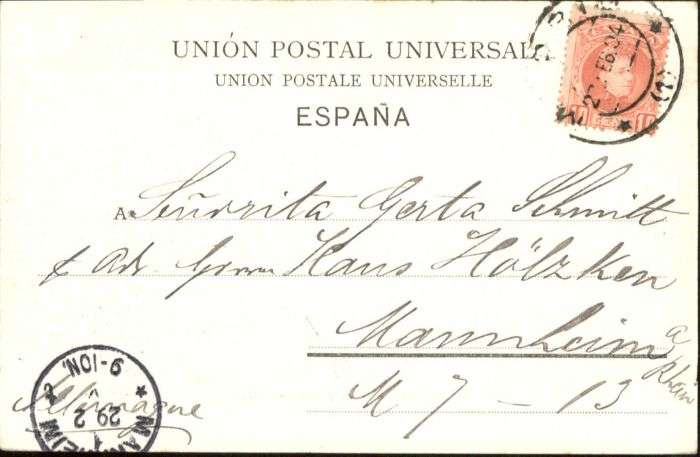 UNIÓN POSTAL UNIVERSAL
UNION POSTALE UNIVERSELLE
ESPAÑA
A Señorita Gerta Schmitt
Adr. Herrn Hans Hölzken
Mannheim a Rhein
M 7 – 13
Allemagne
MANNHEIM
29 2
9-10N.
(1)